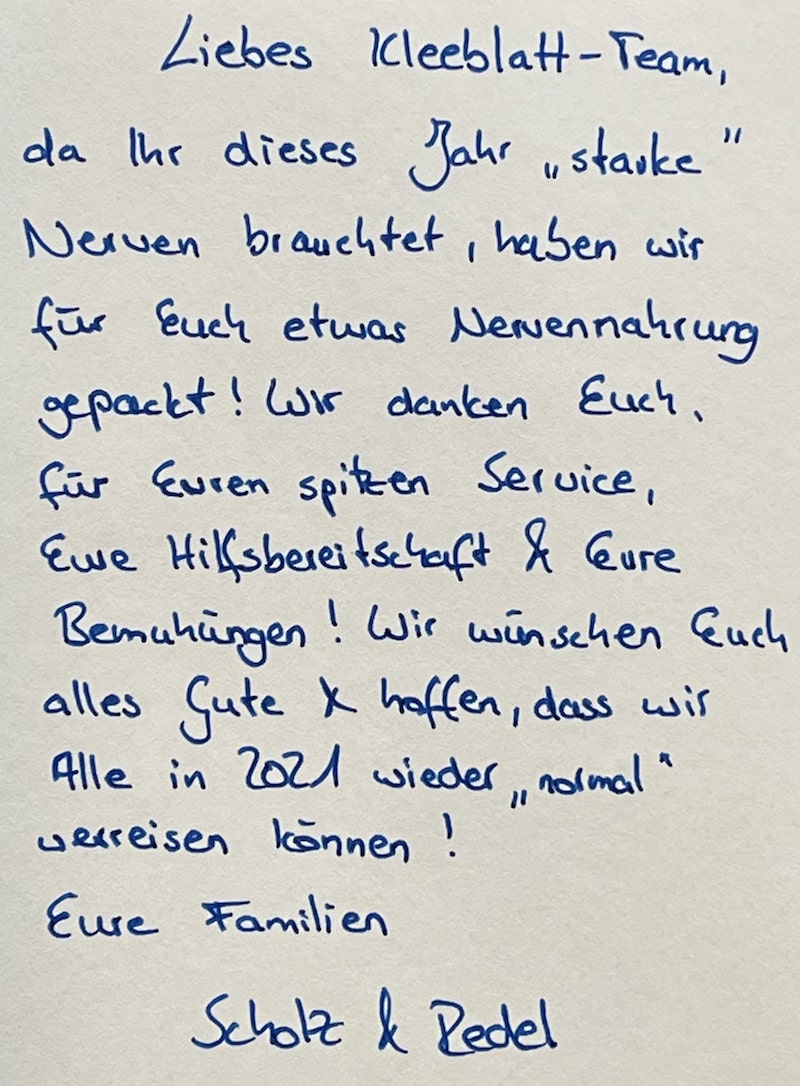 Liebes Kleeblatt-Team,
da Ihr dieses Jahr „starke"
Nerven brauchtet, haben wir
für Euch etwas Nervennahrung
gepackt! Wir danken Euch,
für Euren spitzen Service,
Eure Hilfsbereitschaft & Eure
Bemühungen! Wir wünschen Euch
alles Gute & hoffen, dass wir
Alle in 2021 wieder „normal"
verreisen können!
Eure Familien
Scholz & Redel